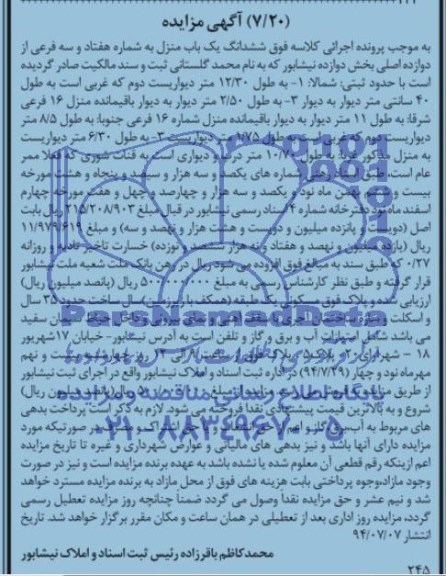 (۷/۲۰) آگهی مزایده
به موجب پرونده اجرائی کلاسه فوق ششدانگ یک باب منزل به شماره هفتاد و سه فرعی از
دوازده اصلی بخش دوازده نیشابور که به نام محمد گلستانی ثبت و سند مالکیت صادر گردیده
است با حدود ثبتی: شمالا: ۱- به طول ۱۲/۳۰ متر دیواریست دوم که غربی است به طول
۴۰ سانتی متر دیوار به دیوار ۳- به طول ۲/۵۰ متر دیوار به دیوار باقیمانده منزل ۱۶ فرعی
شرقا: به طول ۱۱ متر دیوار به دیوار باقیمانده منزل شماره ۱۶ فرعی جنوبا: به طول ۸/۵ متر
دیواریست دوم که غربی است به طول ۱/۷۵ متر دیواریست ۳- به طول ۶/۳۰ متر دیواریست
به منزل مذکور غربا: به طول ۱۰/۷۰ متر درب و دیواری است به قنات شوری که فعلا ممر
عام است. طبق اسناد رهنی شماره های یکصد و سه هزار و سیصد و پنجاه و هشت مورخه
بیست و ششم بهمن ماه نود و یکصد و سه هزار و چهارصد و چهل و هفت مورخه چهارم
اسفند ماه نود دفترخانه شماره ۴ اسناد رسمی نیشابور در قبال مبلغ ۲۱۵/۲۰۸/۹۰۳ ریال بابت
اصل (دویست و پانزده میلیون و دویست و هشت هزار و نهصد و سه) و مبلغ ۱۱/۹۷۹/۶۱۹
ریال (یازده میلیون و نهصد و هفتاد و نه هزار و ششصد و نوزده) خسارت تاخیر تادیه و روزانه
۰/۲۷ که طبق سند به مبالغ فوق افزوده می شود ریال در رهن بانک ملت شعبه ملت نیشابور
قرار گرفته و طبق نظر کارشناس رسمی به مبلغ ۵۰۰/۰۰۰/۰۰۰ ریال (پانصد میلیون ریال)
ارزیابی شده و پلاک فوق مسکونی یک طبقه (همکف با زیرزمین) سال ساخت حدود ۲۵ سال
می باشد شامل امتیازات آب و برق و گاز و تلفن است به آدرس نیشابور - خیابان ۱۷ شهریور
مهرماه نود و چهار (۹۴/۷/۲۹) در اداره ثبت اسناد و املاک نیشابور واقع در اجرای ثبت نیشابور
شروع و به بالاترین قیمت پیشنهادی نقدا فروخته می شود. لازم به ذکر است پرداخت بدهی
مزایده دارای آنها باشد و نیز بدهی های مالیاتی و عوارض شهرداری و غیره تا تاریخ مزایده
اعم ازینکه رقم قطعی آن معلوم شده یا نشده باشد به عهده برنده مزایده است و نیز در صورت
وجود مازاد، وجوه پرداختی بابت هزینه های فوق از محل مازاد به برنده مزایده مسترد خواهد
شد و نیم عشر و حق مزایده نقداً وصول می گردد ضمناً چنانچه روز مزایده تعطیل رسمی
گردد، مزایده روز اداری بعد از تعطیلی در همان ساعت و مکان مقرر برگزار خواهد شد. تاریخ
انتشار ۹۴/۰۷/۰۷
محمدکاظم باقرزاده رئیس ثبت اسناد و املاک نیشابور
۲۴۵
ParsNamadData
پایگاه اطلاع رسانی مناقصه و مزایده
۰۲۱-۸۸۳۴۹۶۷۰-۵